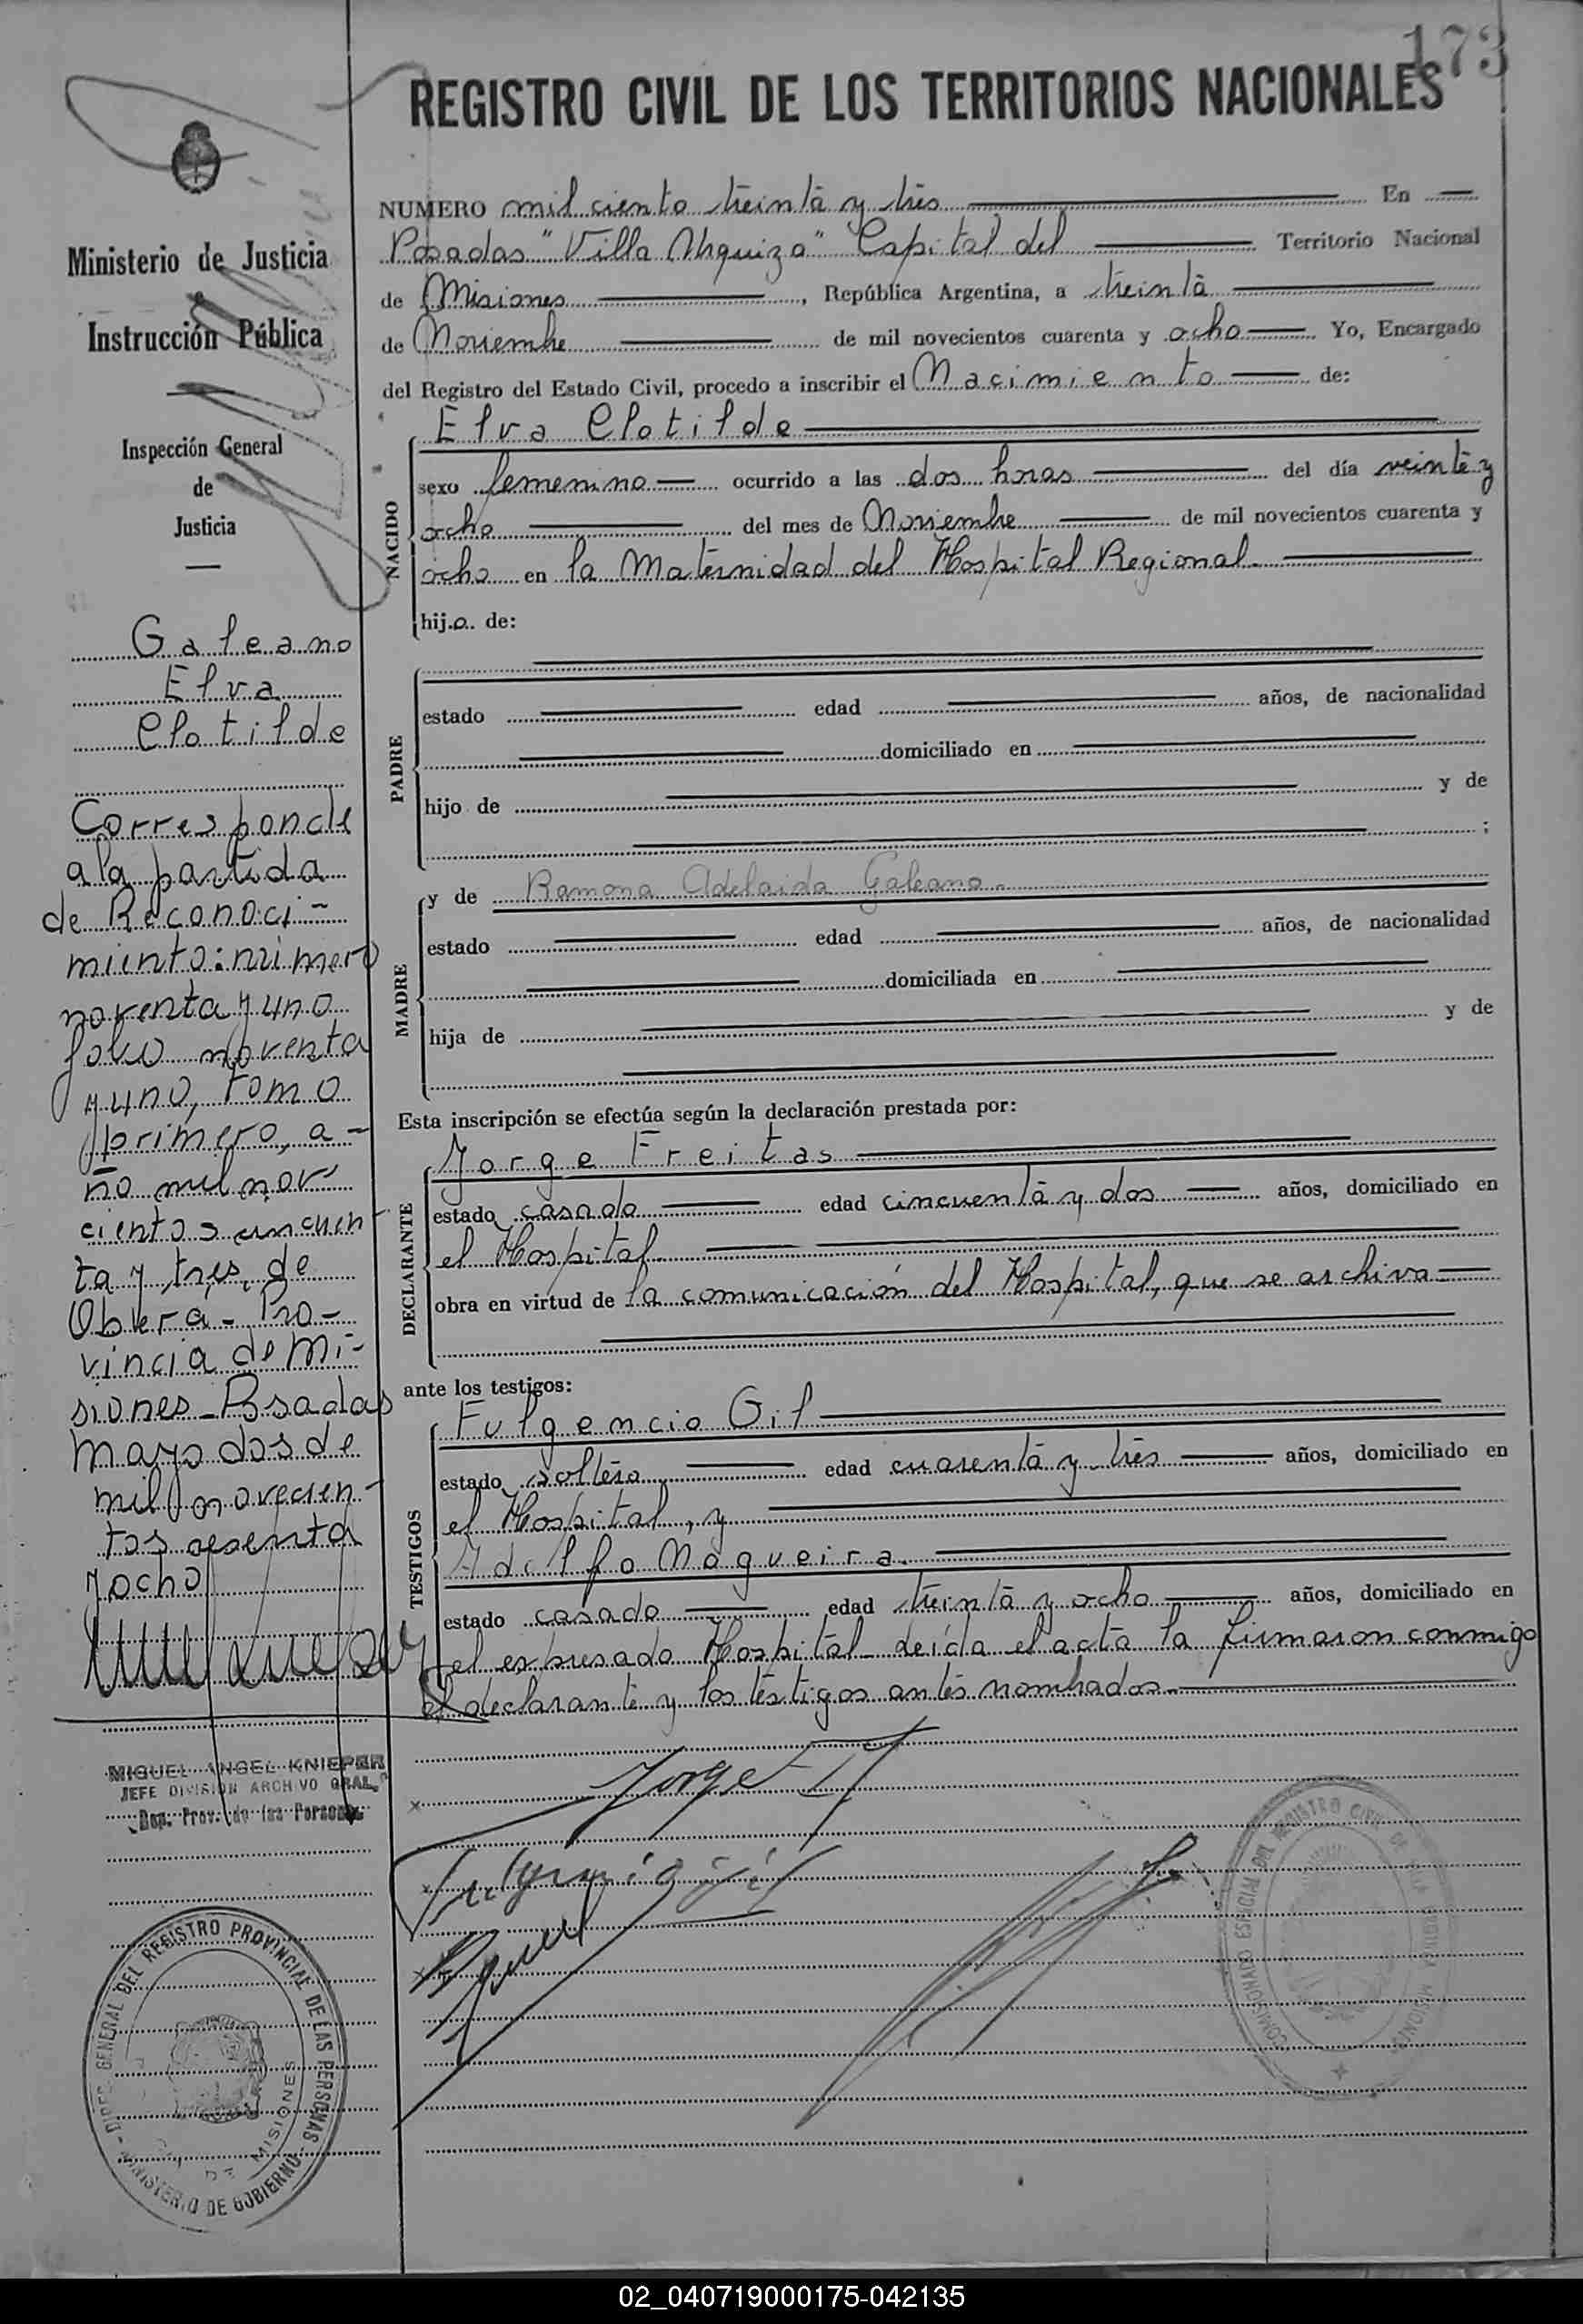 173
REGISTRO CIVIL DE LOS TERRITORIOS NACIONALES
Ministerio de Justicia
e
Instrucción Pública
Inspección General
de
Justicia
Galeano
Elva
Clotilde
Corresponde
a la partida
de Reconoci-
miento: número
noventa y uno
folio noventa
y uno, tomo
primero, a-
ño mil nove
cientos cincuen
ta y tres, de
Obera - Pro-
vincia de Mi-
siones - Posadas
mayo dos de
mil novecien-
tos sesenta
y ocho
MIGUEL ANGEL KNIEPER
JEFE DIVISION ARCHIVO GRAL.
Reg. Prov. de las Personas
DIREC. GENERAL DEL REGISTRO PROVINCIAL DE LAS PERSONAS
MINISTERIO DE GOBIERNO
MISIONES
NUMERO mil ciento treinta y tres En
Posadas "Villa Urquiza" Capital del Territorio Nacional
de Misiones, República Argentina, a treinta
de Noviembre de mil novecientos cuarenta y ocho Yo, Encargado
del Registro del Estado Civil, procedo a inscribir el Nacimiento de:
NACIDO
Elva Clotilde
sexo femenino ocurrido a las dos horas del día veinte y
ocho del mes de Noviembre de mil novecientos cuarenta y
ocho en la Maternidad del Hospital Regional.
hijo de:
PADRE
estado edad años, de nacionalidad
domiciliado en
hijo de y de
;
MADRE
y de Ramona Adelaida Galeano.
estado edad años, de nacionalidad
domiciliada en
hija de y de
Esta inscripción se efectúa según la declaración prestada por:
DECLARANTE
Jorge Freitas
estado casado edad cincuenta y dos años, domiciliado en
el Hospital.
obra en virtud de la comunicación del Hospital, que se archiva
ante los testigos:
TESTIGOS
Fulgencio Gil
estado soltero edad cuarenta y tres años, domiciliado en
el Hospital, y
Adolfo Nogueira.
estado casado edad treinta y ocho años, domiciliado en
el expresado Hospital. leída el acta la firmaron conmigo
el declarante y los testigos antes nombrados.
Jorge F
Fulgencio Gil
COMISIONADO ESPECIAL DEL REGISTRO CIVIL DE MISIONES
02_040719000175-042135